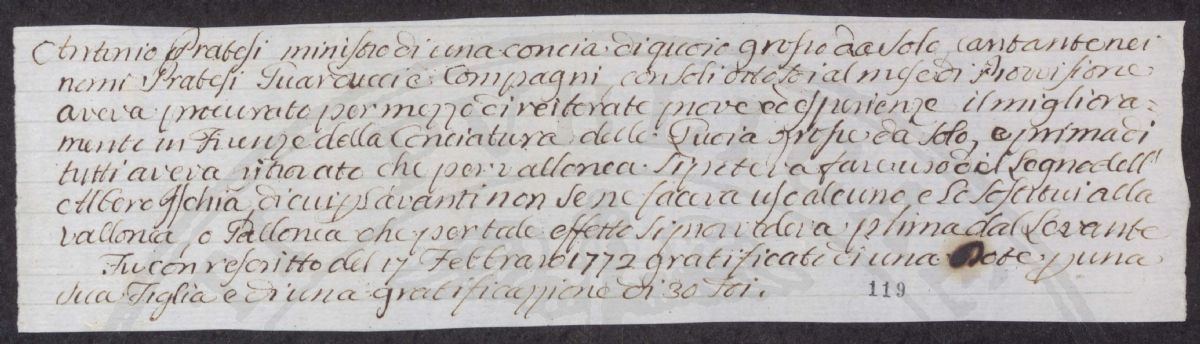 Antonio Pratesi ministro di una concia di quoio grosso da Sole, cantante nei
nomi Pratesi Guarducci e Compagni con soli otto Scudi al mese di Provvisione
aveva procurato per mezzo di reiterate prove ed esperienze il migliora=
mento in Firenze della Conciatura delle Quoia grosse da Solo, e prima di
tutti aveva ritrovato che per vallonea si poteva fare uso del Legno dell'
Albero Ischia, di cui p l'avanti non se ne faceva uso alcuno, e lo sostitui alla
vallonea, o Gallonea che per tale effetto si provvedeva prima dal Levante
Fu con rescritto del 17 Febbraio 1772 gratificato di una Dote p una
sua Figlia e di una gratificazione di 30
119